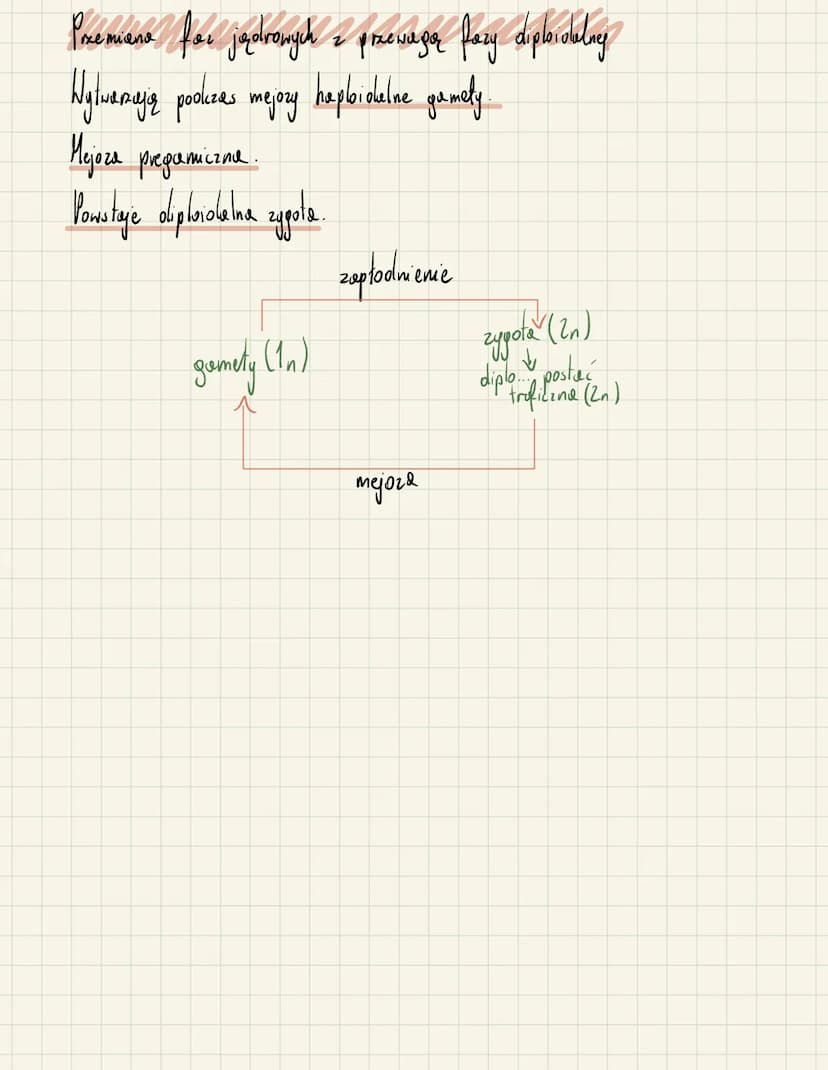 Przemiana faz jądrowych z przewagą fazy diploidalnej
Wytwarzają podczas mejozy haploidalne gamety.
Mejoza pregamiczna.
Powstaje diploidalna zygota.
zapłodnienie
gamety (1n)
zygota (2n)
↓
diplo... postać
troficzna (2n)
mejoza